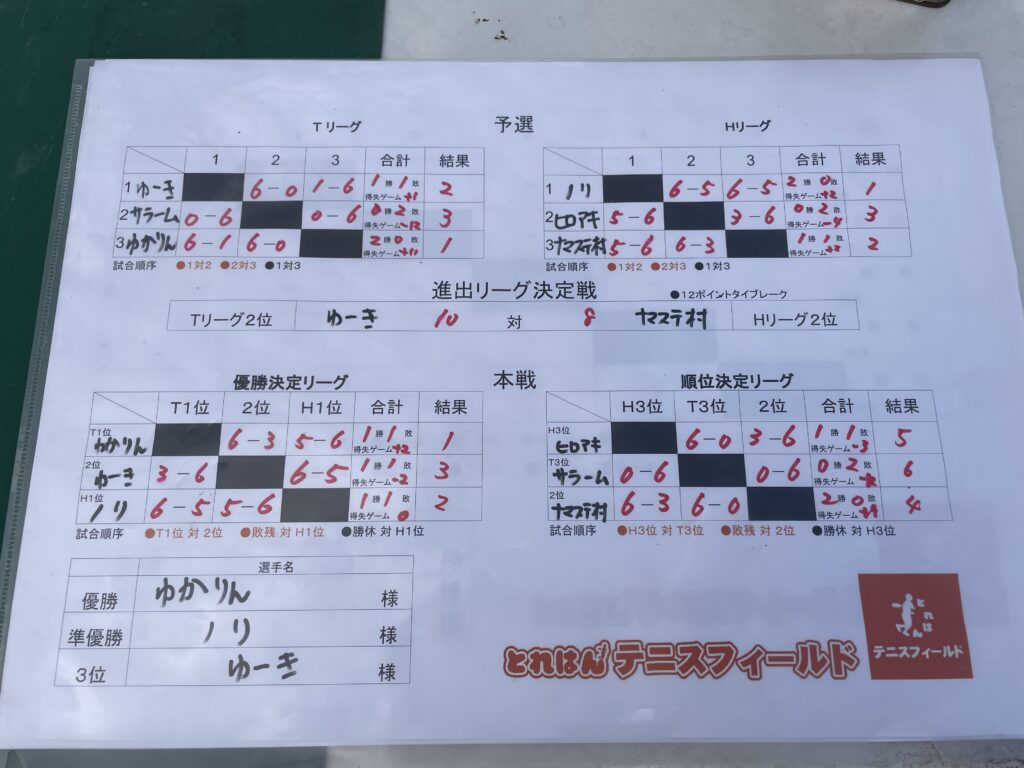 予選
Tリーグ
1 2 3 合計 結果
1 ゆーき 6-0 1-6 1勝1敗 得失ゲーム+1 2
2 サラーム 0-6 0-6 0勝2敗 得失ゲーム-12 3
3 ゆかりん 6-1 6-0 2勝0敗 得失ゲーム+11 1
試合順序 ●1対2 ●2対3 ●1対3
Hリーグ
1 2 3 合計 結果
1 ノリ 6-5 6-5 2勝0敗 得失ゲーム+2 1
2 ヒロアキ 5-6 3-6 0勝2敗 得失ゲーム-4 3
3 ナマステ村 5-6 6-3 1勝1敗 得失ゲーム+2 2
試合順序 ●1対2 ●2対3 ●1対3
進出リーグ決定戦 ●12ポイントタイブレーク
Tリーグ2位 ゆーき 10 対 8 ヤマステ村 Hリーグ2位
本戦
優勝決定リーグ
T1位 2位 H1位 合計 結果
T1位 ゆかりん 6-3 5-6 1勝1敗 得失ゲーム+2 1
2位 ゆーき 3-6 6-5 1勝1敗 得失ゲーム-2 3
H1位 ノリ 6-5 5-6 1勝1敗 得失ゲーム0 2
試合順序 ●T1位 対 2位 ●敗残 対 H1位 ●勝休 対 H1位
順位決定リーグ
H3位 T3位 2位 合計 結果
H3位 ヒロアキ 6-0 3-6 1勝1敗 得失ゲーム-3 5
T3位 サラーム 0-6 0-6 0勝2敗 得失ゲーム 6
2位 ナマステ村 6-3 6-0 2勝0敗 得失ゲーム 4
試合順序 ●H3位 対 T3位 ●敗残 対 2位 ●勝休 対 H3位
選手名
優勝 ゆかりん 様
準優勝 ノリ 様
3位 ゆーき 様
とれはん テニスフィールド
とれはん
テニスフィールド